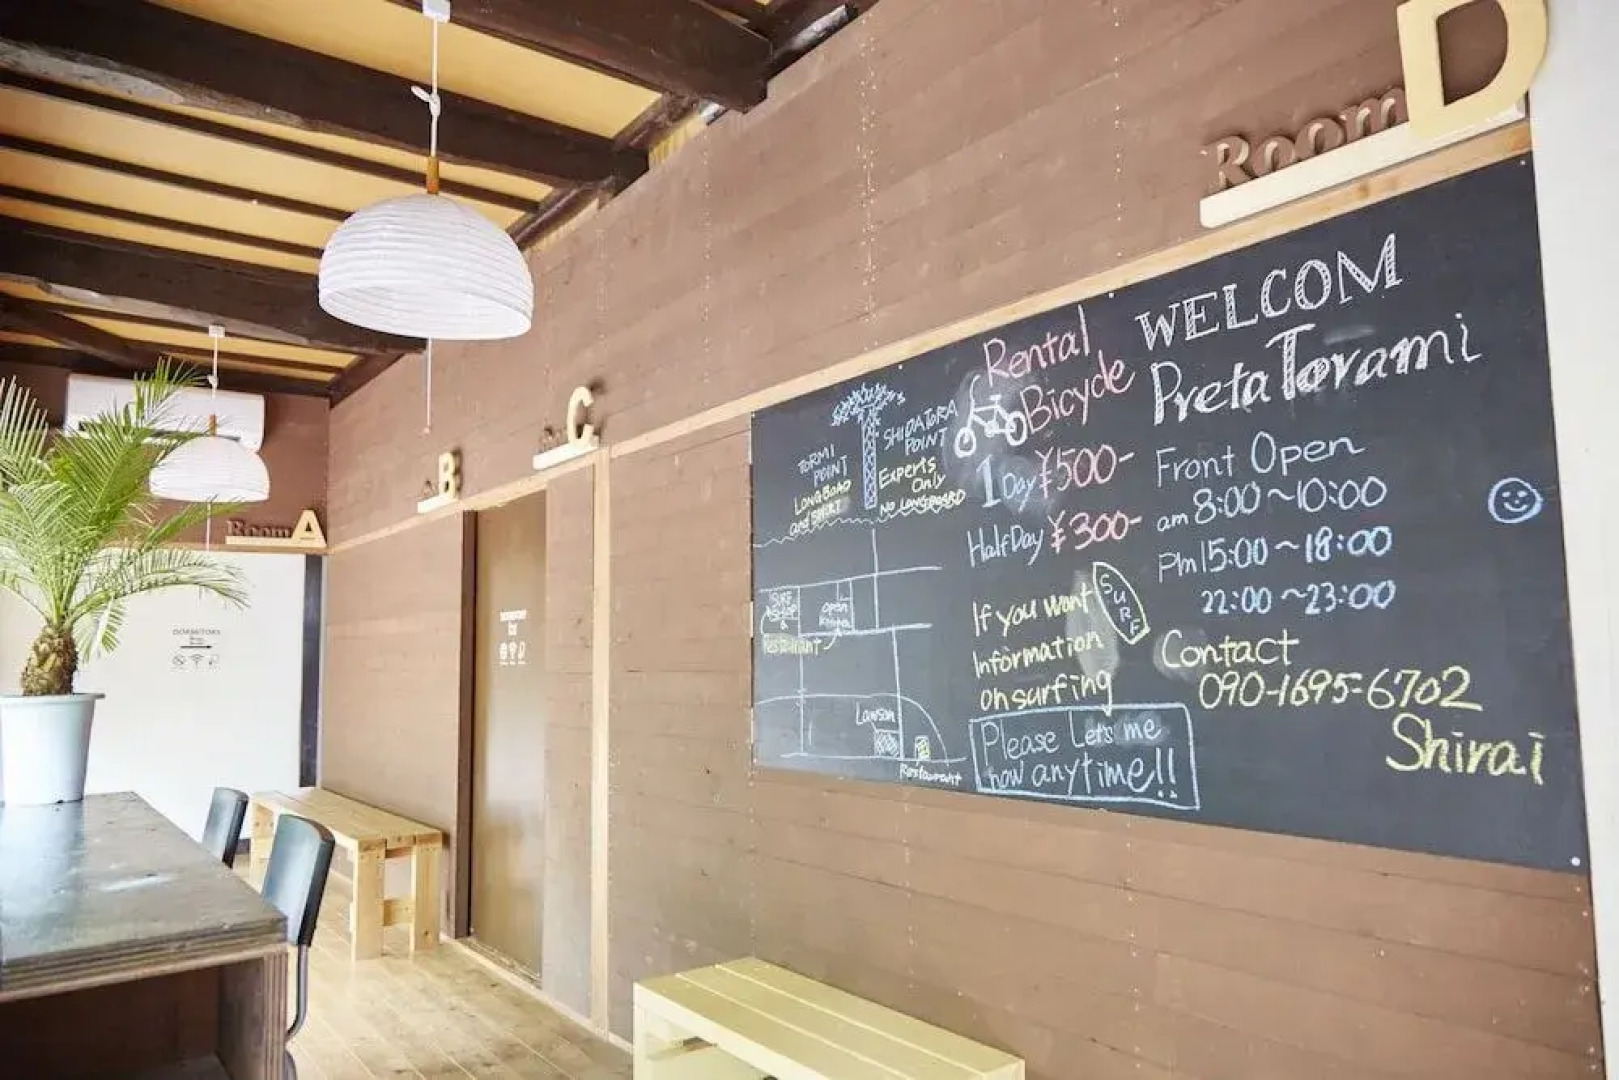 Room D
Room A
B
C
DORMITORY
WELCOM
PretaTorami
Front Open
am 8:00~10:00
Pm 15:00~18:00
22:00~23:00
Contact
090-1695-6702
Shirai
Rental
Bicycle
1 Day ¥500-
Half Day ¥300-
If you want
Information
on surfing
SURF
Please Let's me
now anytime!!
TORMI
POINT
LONGBOAD
and SHORT
SHIDATORA
POINT
Experts
Only
NO LONGBOARD
SURF
SHOP
&
Restaurant
Open
Lawson
Restaurant